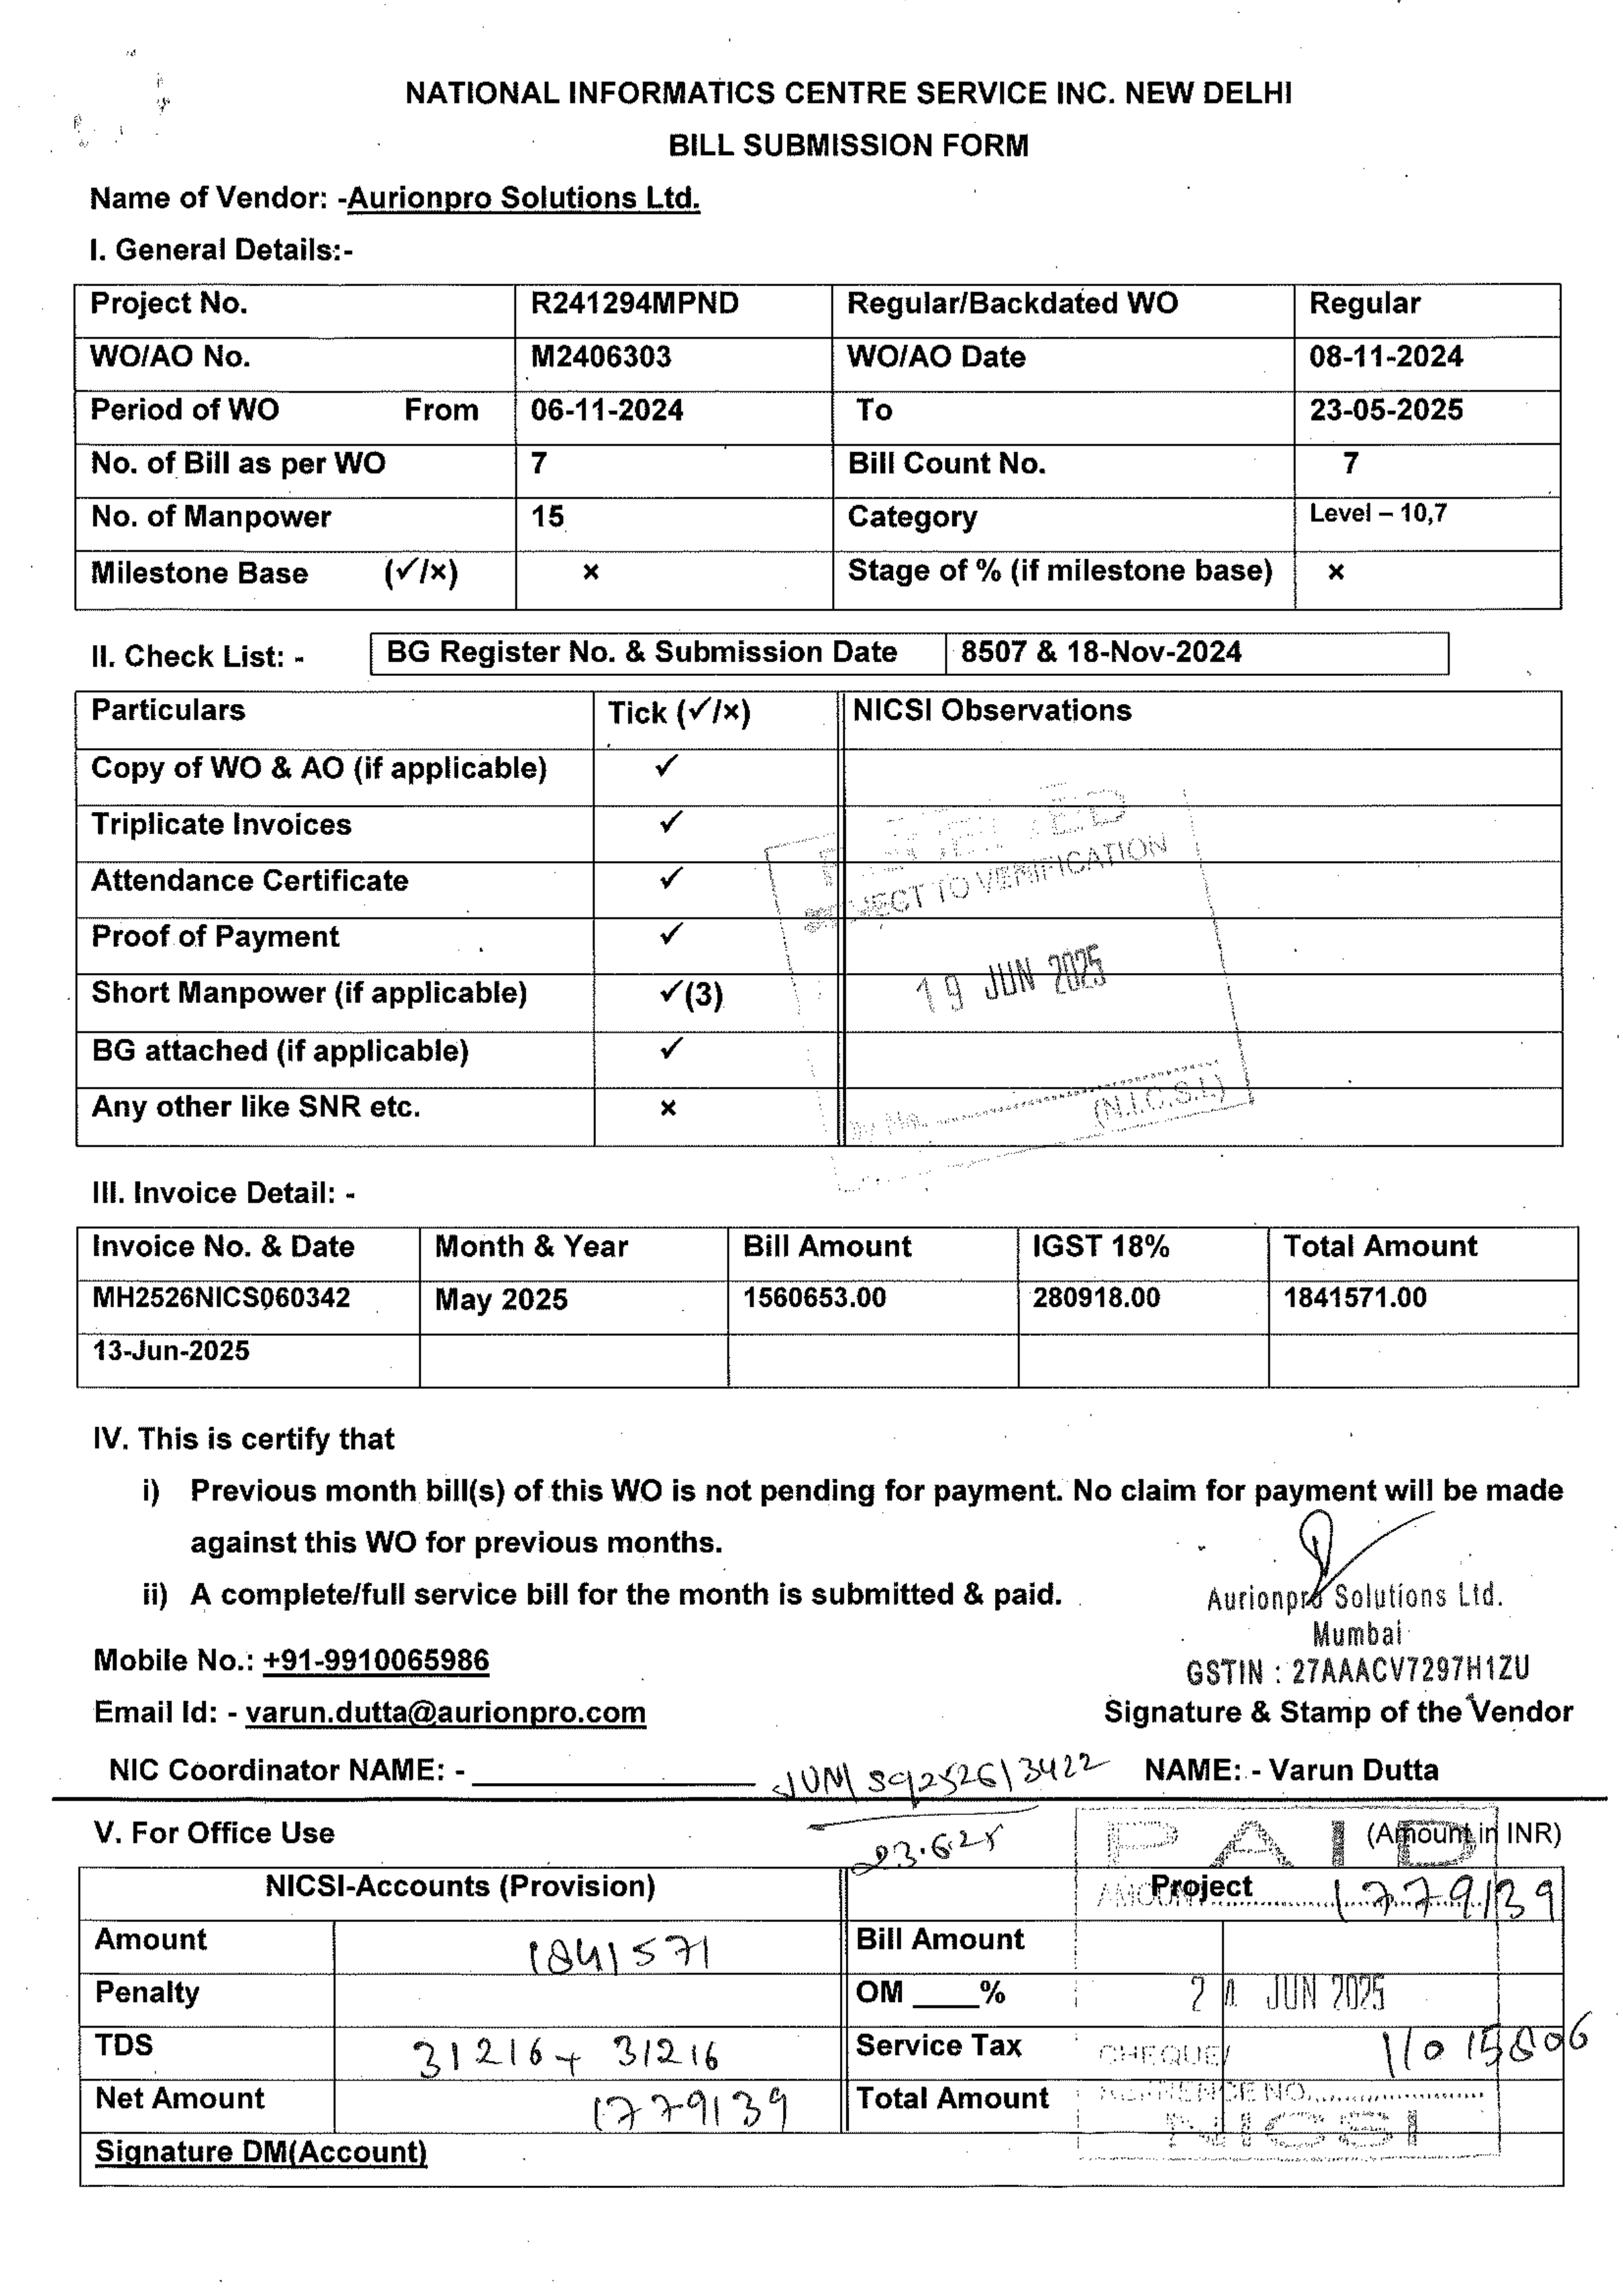 NATIONAL INFORMATICS CENTRE SERVICE INC. NEW DELHI
BILL SUBMISSION FORM
Name of Vendor: -Aurionpro Solutions Ltd.
I. General Details:-
Project No. R241294MPND Regular/Backdated WO Regular
WO/AO No. M2406303 WO/AO Date 08-11-2024
Period of WO From 06-11-2024 To 23-05-2025
No. of Bill as per WO 7 Bill Count No. 7
No. of Manpower 15 Category Level – 10,7
Milestone Base (✓/×) × Stage of % (if milestone base) ×
II. Check List: - BG Register No. & Submission Date 8507 & 18-Nov-2024
Particulars Tick (✓/×) NICSI Observations
Copy of WO & AO (if applicable) ✓
Triplicate Invoices ✓
Attendance Certificate ✓
TO VERIFICATION
Proof of Payment ✓
19 JUN 2025
Short Manpower (if applicable) ✓(3)
BG attached (if applicable) ✓
Any other like SNR etc. ×
(N.I.C.S.I.)
III. Invoice Detail: -
Invoice No. & Date Month & Year Bill Amount IGST 18% Total Amount
MH2526NICS060342 May 2025 1560653.00 280918.00 1841571.00
13-Jun-2025
IV. This is certify that
i) Previous month bill(s) of this WO is not pending for payment. No claim for payment will be made
against this WO for previous months.
ii) A complete/full service bill for the month is submitted & paid.
Aurionpro Solutions Ltd.
Mumbai
GSTIN : 27AAACV7297H1ZU
Mobile No.: +91-9910065986
Email Id: - varun.dutta@aurionpro.com Signature & Stamp of the Vendor
NIC Coordinator NAME: - NAME: - Varun Dutta
V. For Office Use (Amount in INR)
23.6.25
PAID
NICSI-Accounts (Provision) Project
AMOUNT 1779139
Amount 1841571 Bill Amount
Penalty OM ____%
JUN 2025
TDS 31216+ 31216 Service Tax
CHEQUE/
Net Amount 1779139 Total Amount
NICSI
Signature DM(Account)